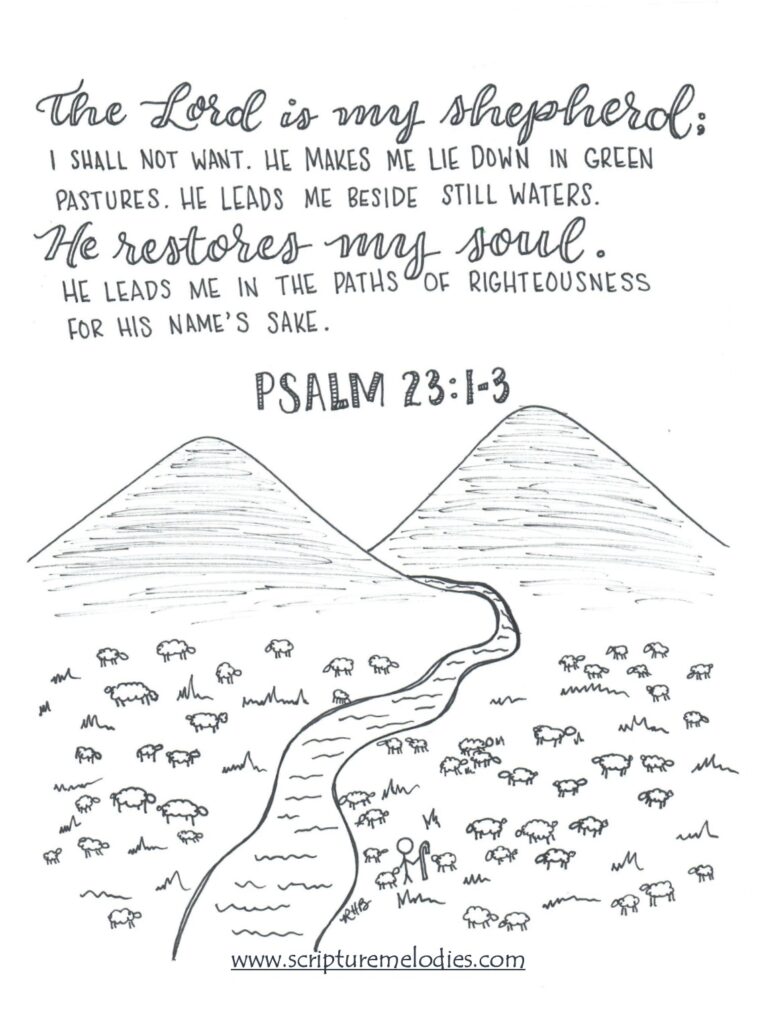 The Lord is my shepherd;
I SHALL NOT WANT. HE MAKES ME LIE DOWN IN GREEN
PASTURES. HE LEADS ME BESIDE STILL WATERS.
He restores my soul.
HE LEADS ME IN THE PATHS OF RIGHTEOUSNESS
FOR HIS NAME'S SAKE.
PSALM 23:1-3
RHB
www.scripturemelodies.com